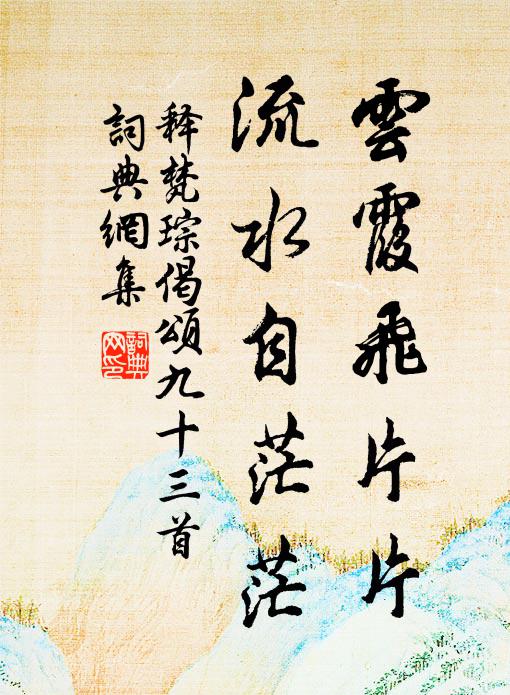 雲霞飛片片
流水自茫茫
释梵琮偈頌九十三首
詞典網集
詞典網印